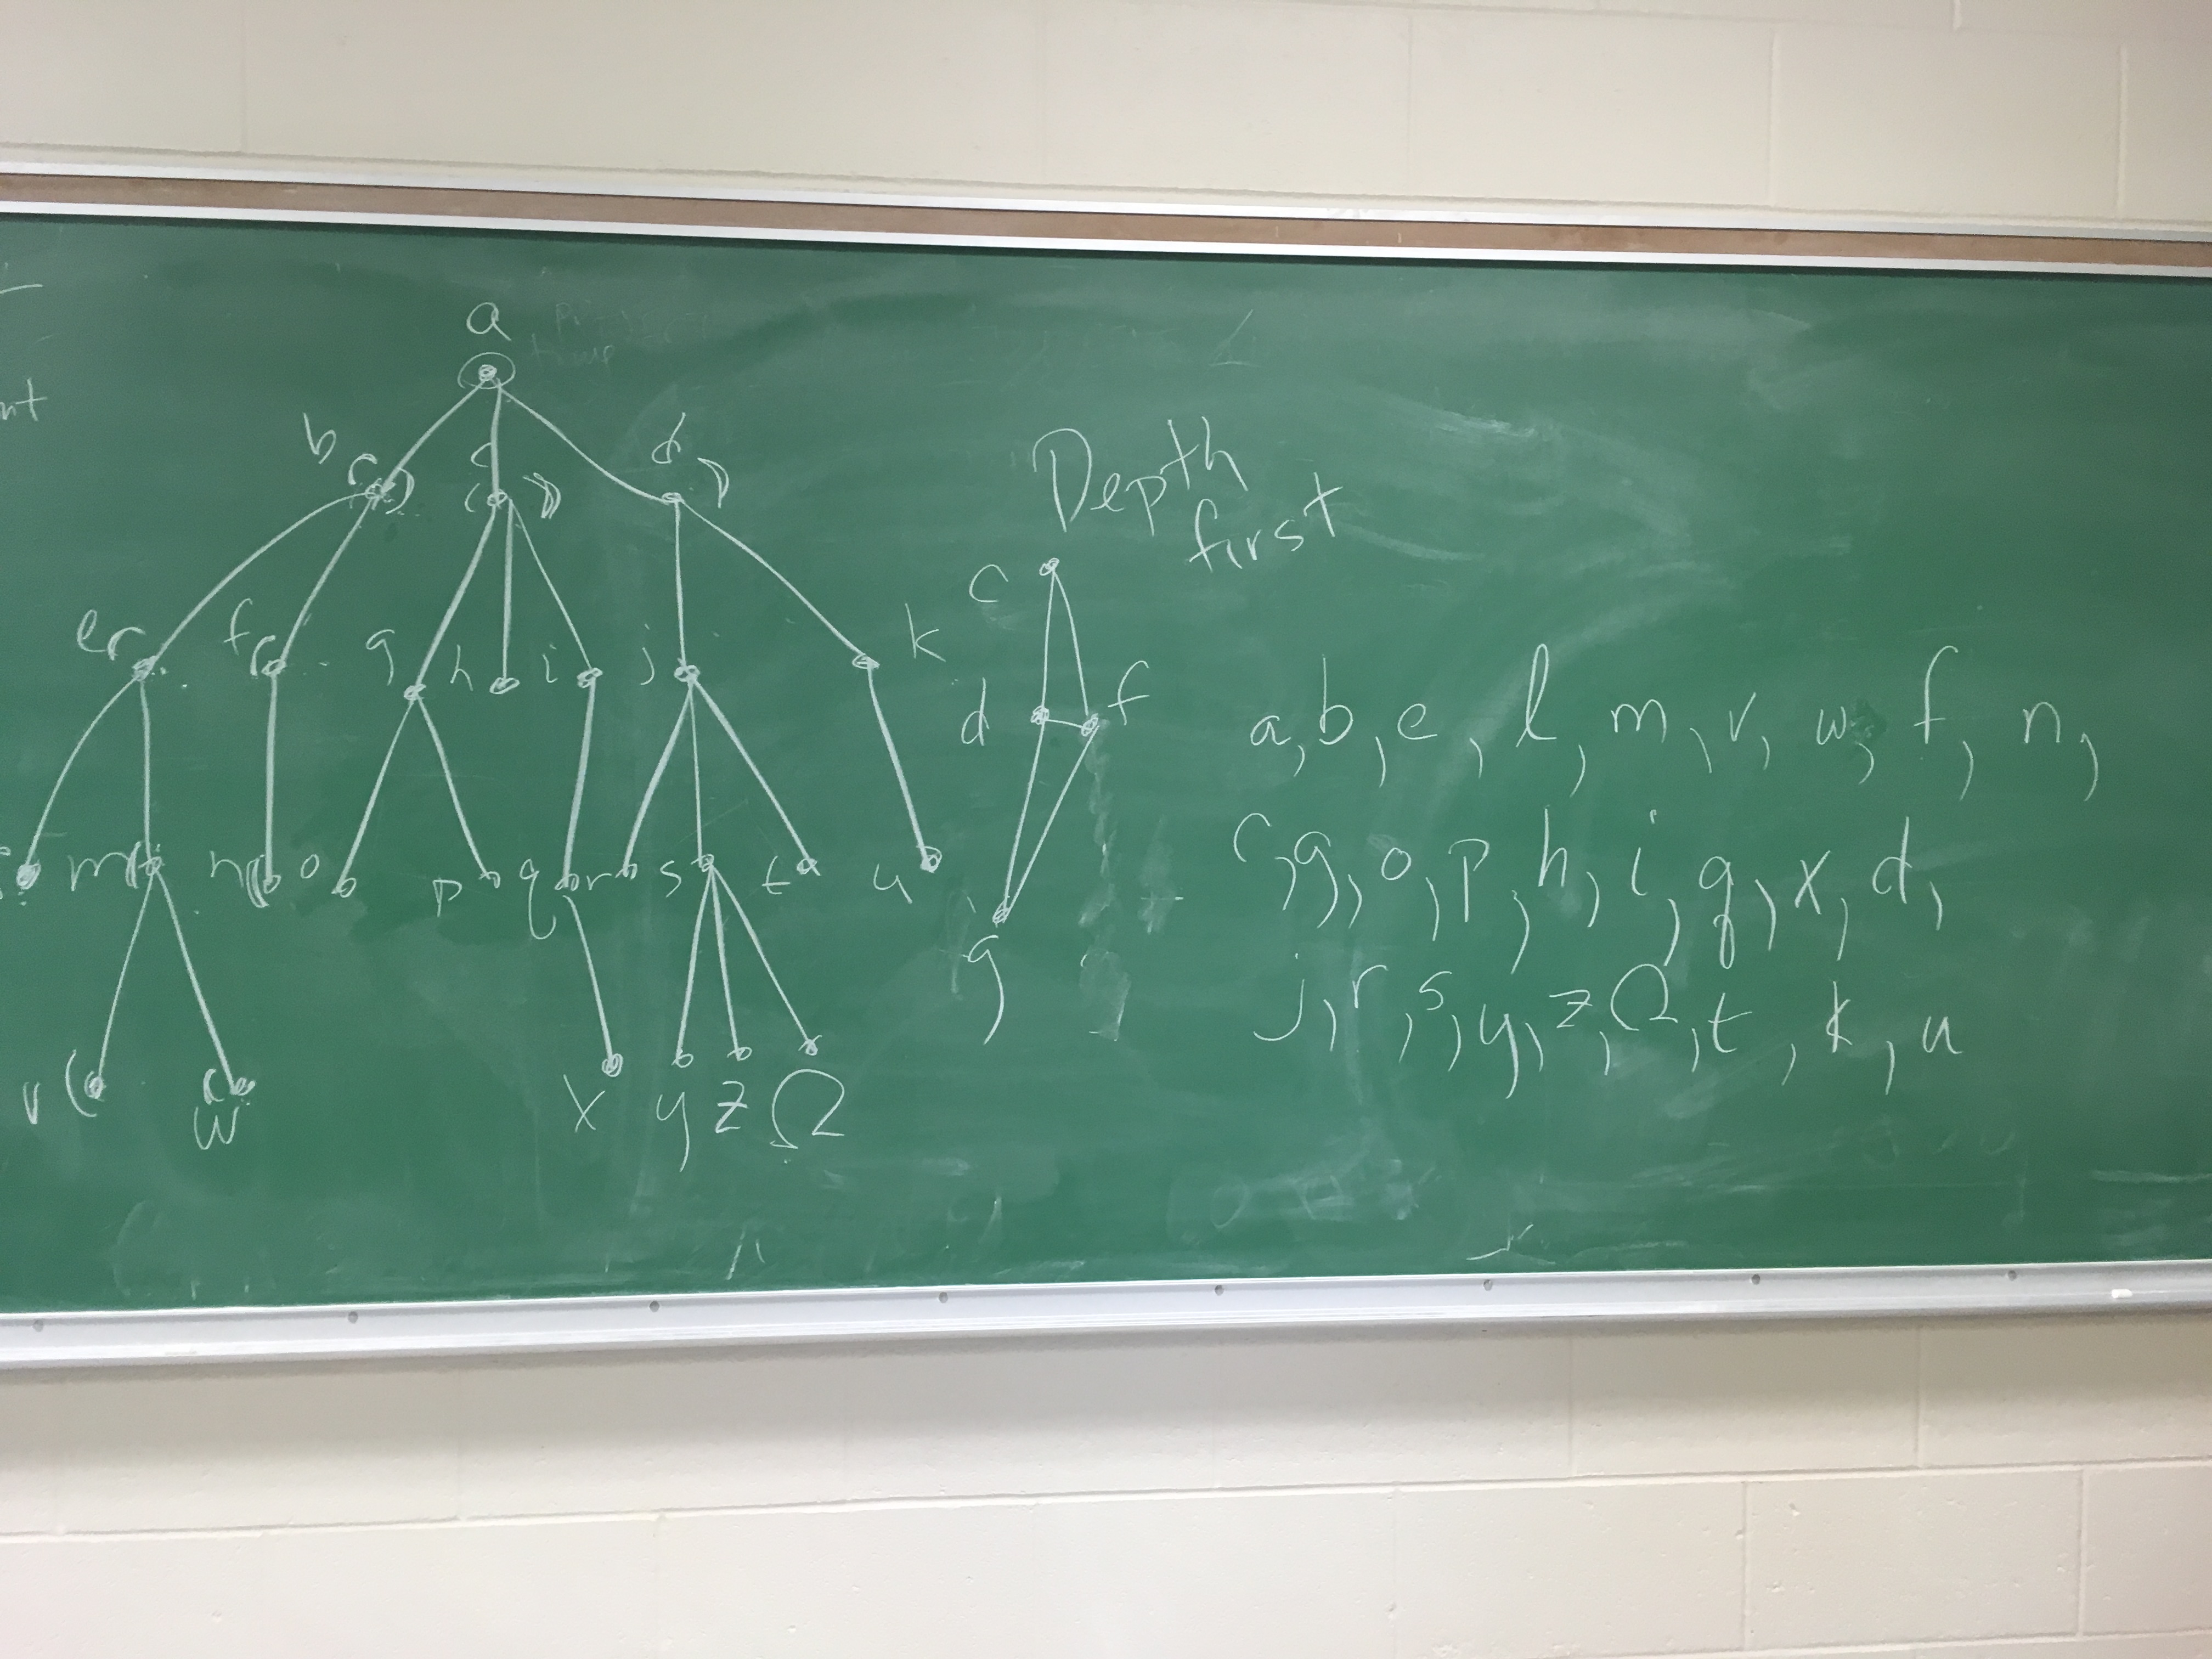 nt
a
b c d
e f g h i j k
m n o p q r s t u
v w x y z Ω
Depth
first
c
d f
g
a, b, e, l, m, v, w, f, n,
c, g, o, p, h, i, q, x, d,
j, r, s, y, z, Ω, t, k, u